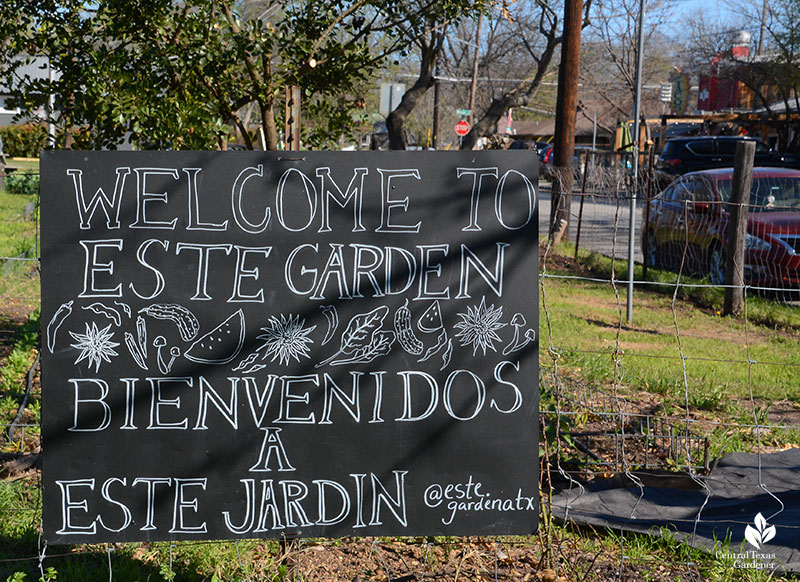 WELCOME TO
ESTE GARDEN
BIENVENIDOS
A
ESTE JARDIN
@este.
gardenatx
Central Texas
Gardener